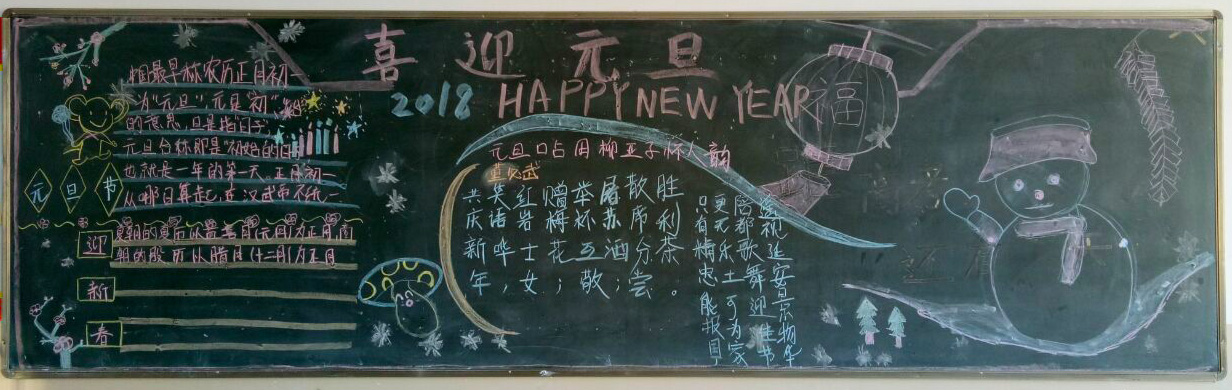 喜迎元旦
2018 HAPPY NEW YEAR
福
国最早称农历正月初一
为“元旦”，元是“初”
的意思，旦是指“日子”
元旦合称即是“初始的日子”
也就是一年的第一天。正月初一
从哪日算起，在汉武帝
元旦节
迎
新
春
元旦口占用柳亚子怀人韵
董必武
共庆新年
笑语哗，
红岩士女；
赠梅花；
举杯互敬
屠苏酒；
散席分尝
胜利茶。
遥祝延安景物华
陪都歌舞迎佳节
更无乐土可为家
只有精忠能报国